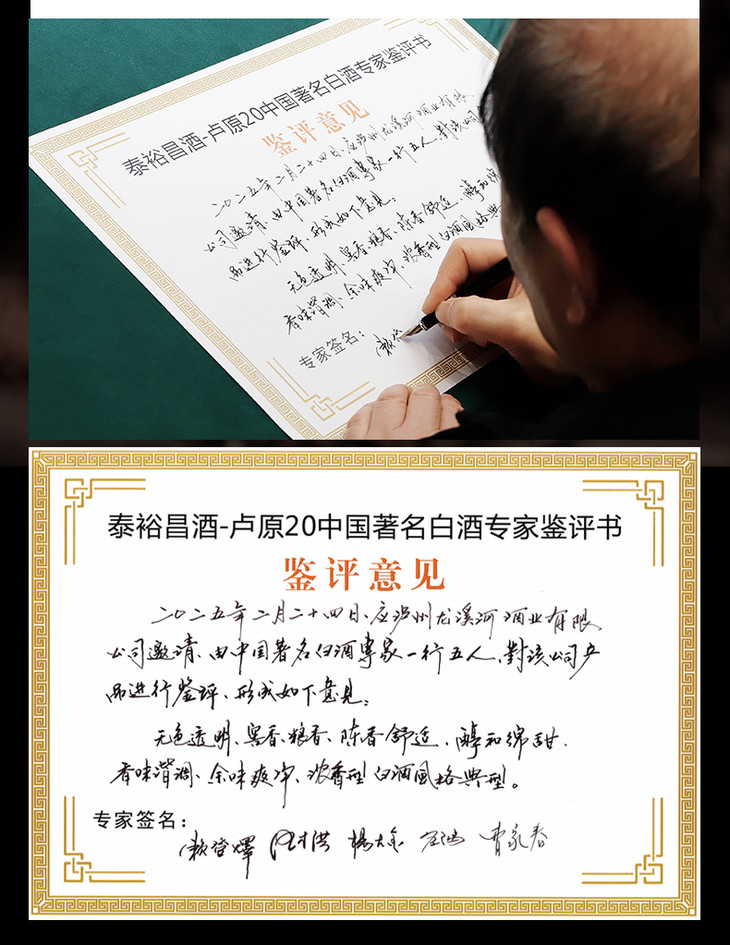 泰裕昌酒-卢原20中国著名白酒专家鉴评书
鉴评意见
二〇二五年二月二十四日、应泸州龙溪河酒业有限
公司邀请、由中国著名白酒專家一行五人、對该公司
品进行鉴评、形成如下意见:
无色透明、窖香、粮香、陈香舒适、醇和绵
香味谐调、余味爽净、浓香型白酒風格典
专家签名:
赖登
泰裕昌酒-卢原20中国著名白酒专家鉴评书
鉴评意见
二〇二五年二月二十四日、应泸州龙溪河酒业有限
公司邀请、由中国著名白酒專家一行五人、對该公司产
品进行鉴评、形成如下意见:
无色透明、窖香、粮香、陈香舒适、醇和绵甜.
香味谐调、余味爽净、浓香型白酒風格典型。
专家签名:
赖登燡 杨大金 曹家春